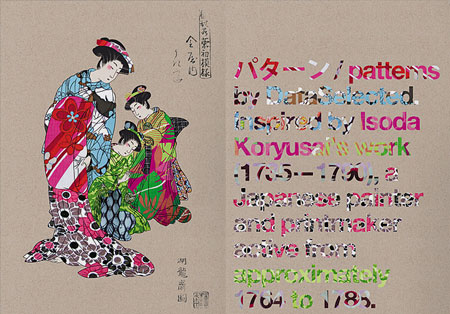 初模様
パターン / patterns
by DataSelected.
Inspired by Isoda
Koryusai's work
(1735–1790), a
Japanese painter
and printmaker
active from
approximately
1764 to 1788.